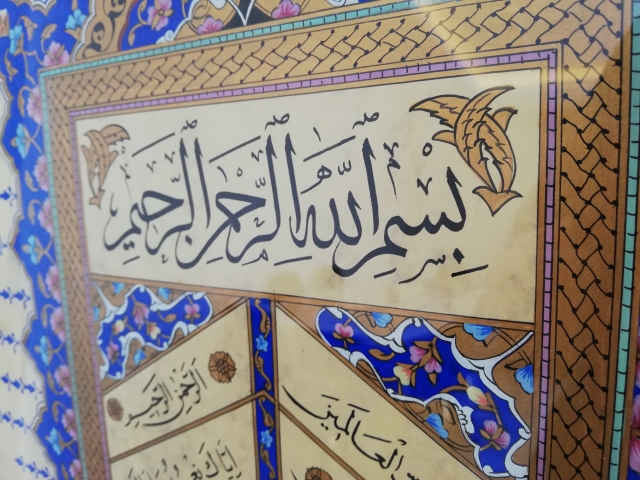 بِسْمِ اللَّهِ الرَّحْمَٰنِ الرَّحِيمِ
الْعَالَمِينَ
الرَّحْمَٰنِ الرَّحِيمِ
إِيَّاكَ